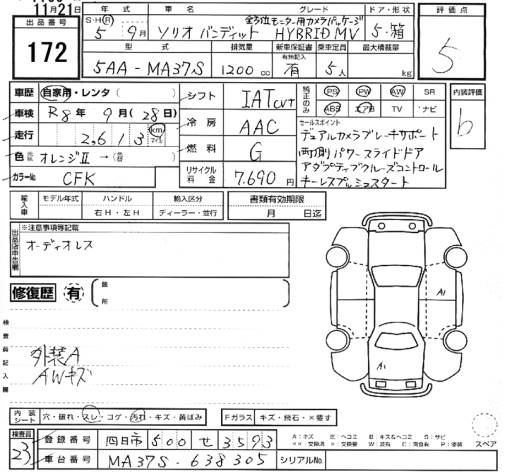 11月21日
出品番号
172
年式 車名 グレード ドア・形状
全方位モニター用カメラパッケージ
S・H・R 5年 9月 ソリオ バンディット HYBRID MV 5・箱
型式 排気量 新車保証書 乗車定員 最大積載量
有無記入
5AA-MA37S 1200cc 有 5人 kg
評価点
5
内装評価
b
車歴 自家用・レンタ( )
車検 R8年 9月(28日)
走行 2,613 km マイル
色 オレンジⅡ →
カラーNo. CFK
シフト IAT CVT
冷房 AAC
燃料 G
リサイクル料金 7,690円
純正のみ PS PW AW SR
ABS エアB TV ナビ
セールスポイント
デュアルカメラブレーキサポート
両側パワースライドドア
アダプティブクルーズコントロール
キーレスプッシュスタート
輸入車 モデル年式 ハンドル 輸入区分 書類有効期限
右H・左H ディーラー・並行 月 日迄
出品店申告欄
※注意事項等記載
オーディオレス
修復歴 有 箇所
検査員記入欄
外装A
AWキズ
A1
A1
内装シート 穴・破れ・スレ・コゲ・汚れ・キズ・黄ばみ
Fガラス キズ・飛石・×要す
スペア
検査員 23
登録番号 四日市 500 せ 3593
車台番号 MA37S-638305 シリアルNo.
A:キズ E:ヘコミ B:キズ&ヘコミ S:サビ